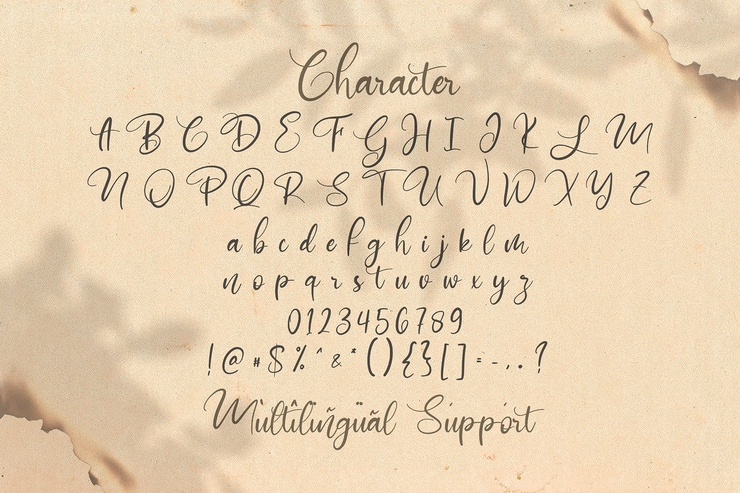 Character
A B C D E F G H I J K L M
N O P Q R S T U V W X Y Z
a b c d e f g h i j k l m
n o p q r s t u v w x y z
0123456789
! @ # $ % ^ & * ( ) { } [ ] = - , . ?
Mùltîlïñgüãl Sùppòrt